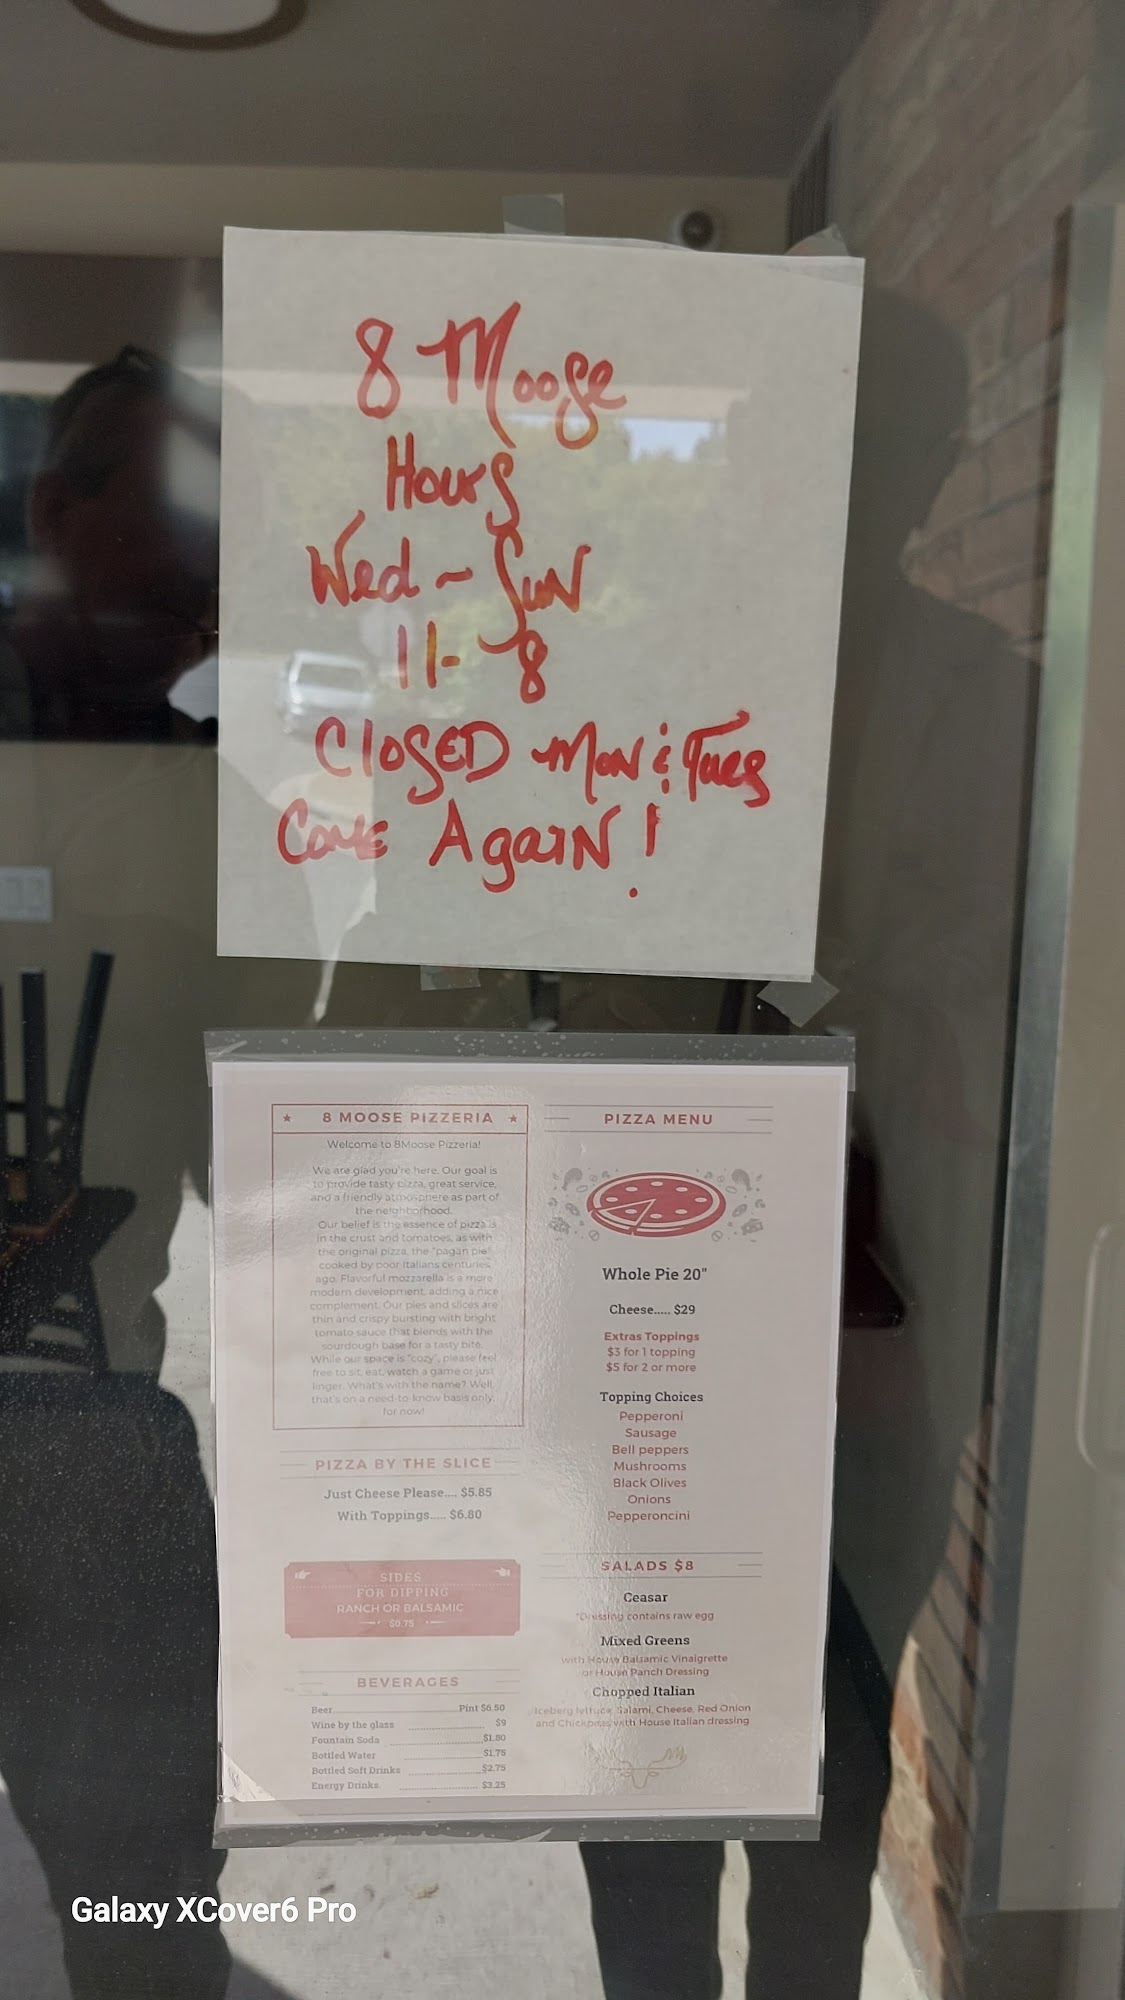 8 Moose
Hours
Wed ~ Sun
11-8
ClOSED Mon & Tues
Come Again!
8 MOOSE PIZZERIA
Welcome to 8Moose Pizzeria!
We are glad you're here. Our goal is
to provide tasty pizza, great service,
and a friendly atmosphere as part of
the neighborhood.
Our belief is the essence of pizza is
in the crust and tomatoes, as with
the original pizza, the "pagan pie"
cooked by poor Italians centuries
ago. Flavorful mozzarella is a more
modern development, adding a nice
complement. Our pies and slices are
thin and crispy bursting with bright
tomato sauce that blends with the
sourdough base for a tasty bite.
While our space is "cozy", please feel
free to sit, eat, watch a game or just
linger. What's with the name? Well,
that's on a need-to-know basis only,
for now!
PIZZA BY THE SLICE
Just Cheese Please.... $5.85
With Toppings..... $6.80
SIDES
FOR DIPPING
RANCH OR BALSAMIC
$0.75
BEVERAGES
Beer Pint $6.50
Wine by the glass $9
Fountain Soda $1.80
Bottled Water $1.75
Bottled Soft Drinks $2.75
Energy Drinks $3.25
PIZZA MENU
Whole Pie 20"
Cheese..... $29
Extras Toppings
$3 for 1 topping
$5 for 2 or more
Topping Choices
Pepperoni
Sausage
Bell peppers
Mushrooms
Black Olives
Onions
Pepperoncini
SALADS $8
Ceasar
*Dressing contains raw egg
Mixed Greens
with House Balsamic Vinaigrette
or House Ranch Dressing
Chopped Italian
Iceberg lettuce, Salami, Cheese, Red Onion
and Chickpeas with House Italian dressing
Galaxy XCover6 Pro